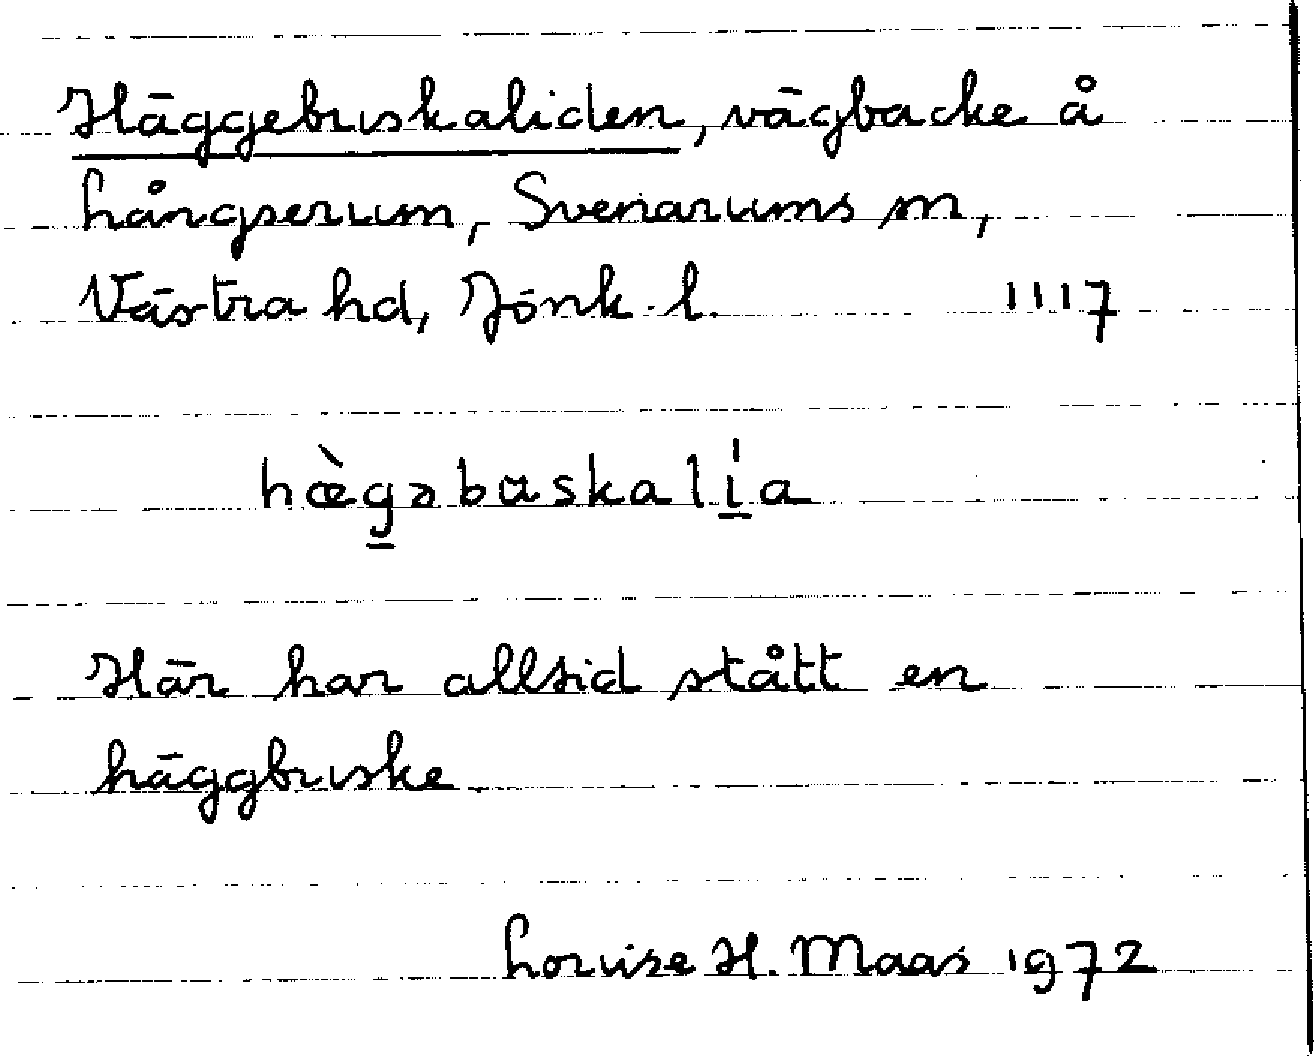 Häggebuskaliden, vägbacke å
Långserum, Svenarums sn,
Västra hd, Jönk. l. 1117
hæ̀g̲əbuskalí̲a
Här har alltid stått en
häggbuske
Louise H. Maas 1972